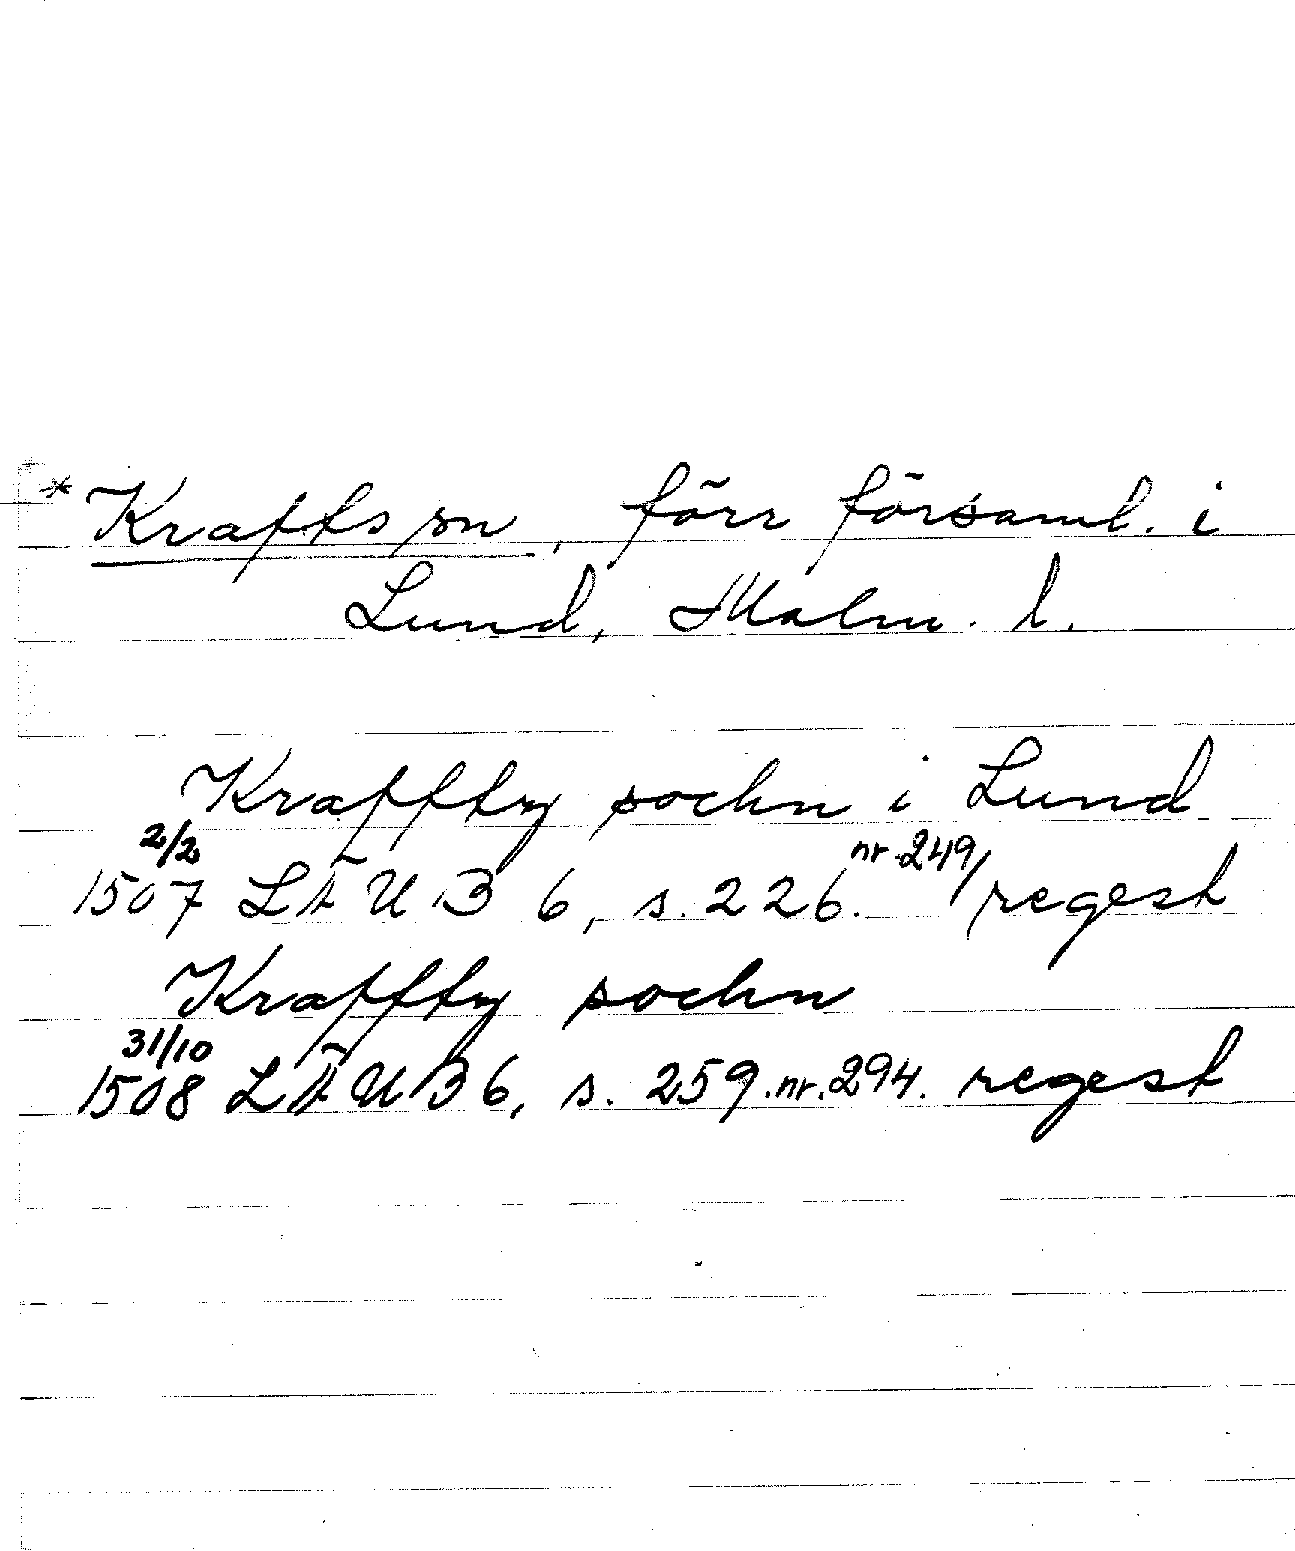 * Krafts sn, förr församl. i
Lund, Malm. l.
Kraffty sochn i Lund
2/2 nr 249/
1507 LÄUB 6, s. 226. regest
Kraffty sochn
31/10
1508 LÄUB 6, s. 259. nr. 294. regest